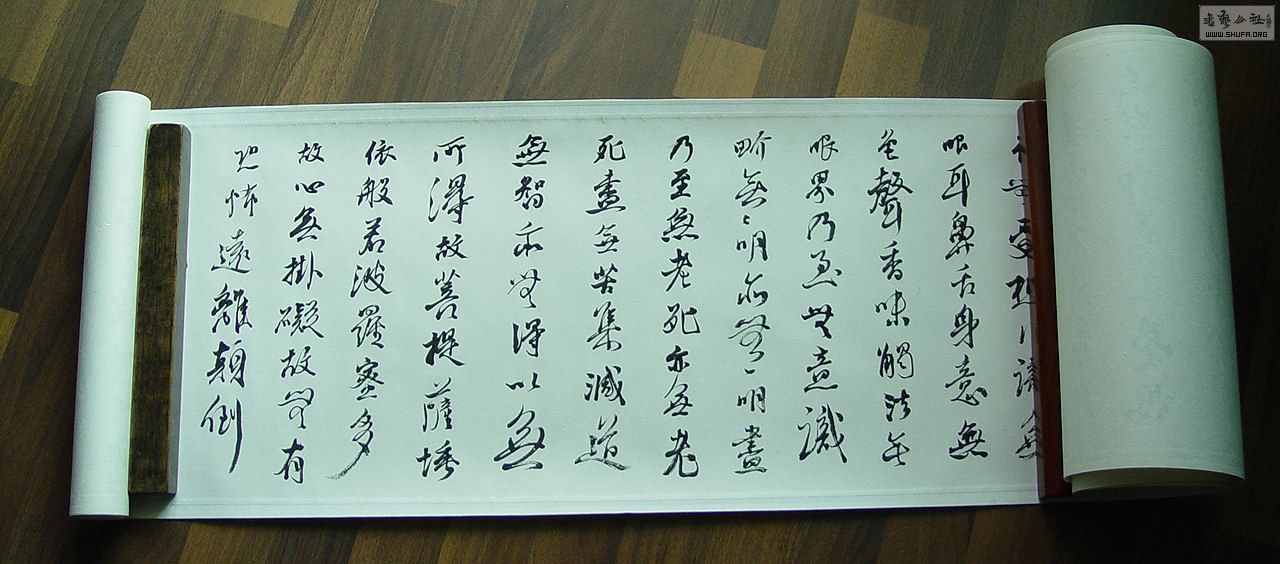 無受想行識無
眼耳鼻舌身意無
色聲香味觸法無
眼界乃至無意識
畍無〻明亦無〻明盡
乃至無老死亦無老
死盡無苦集滅道
無智亦無得以無
所得故菩提薩埵
依般若波羅蜜多
故心無掛礙故無有
恐怖遠離顛倒
書藝公社
WWW.SHUFA.ORG